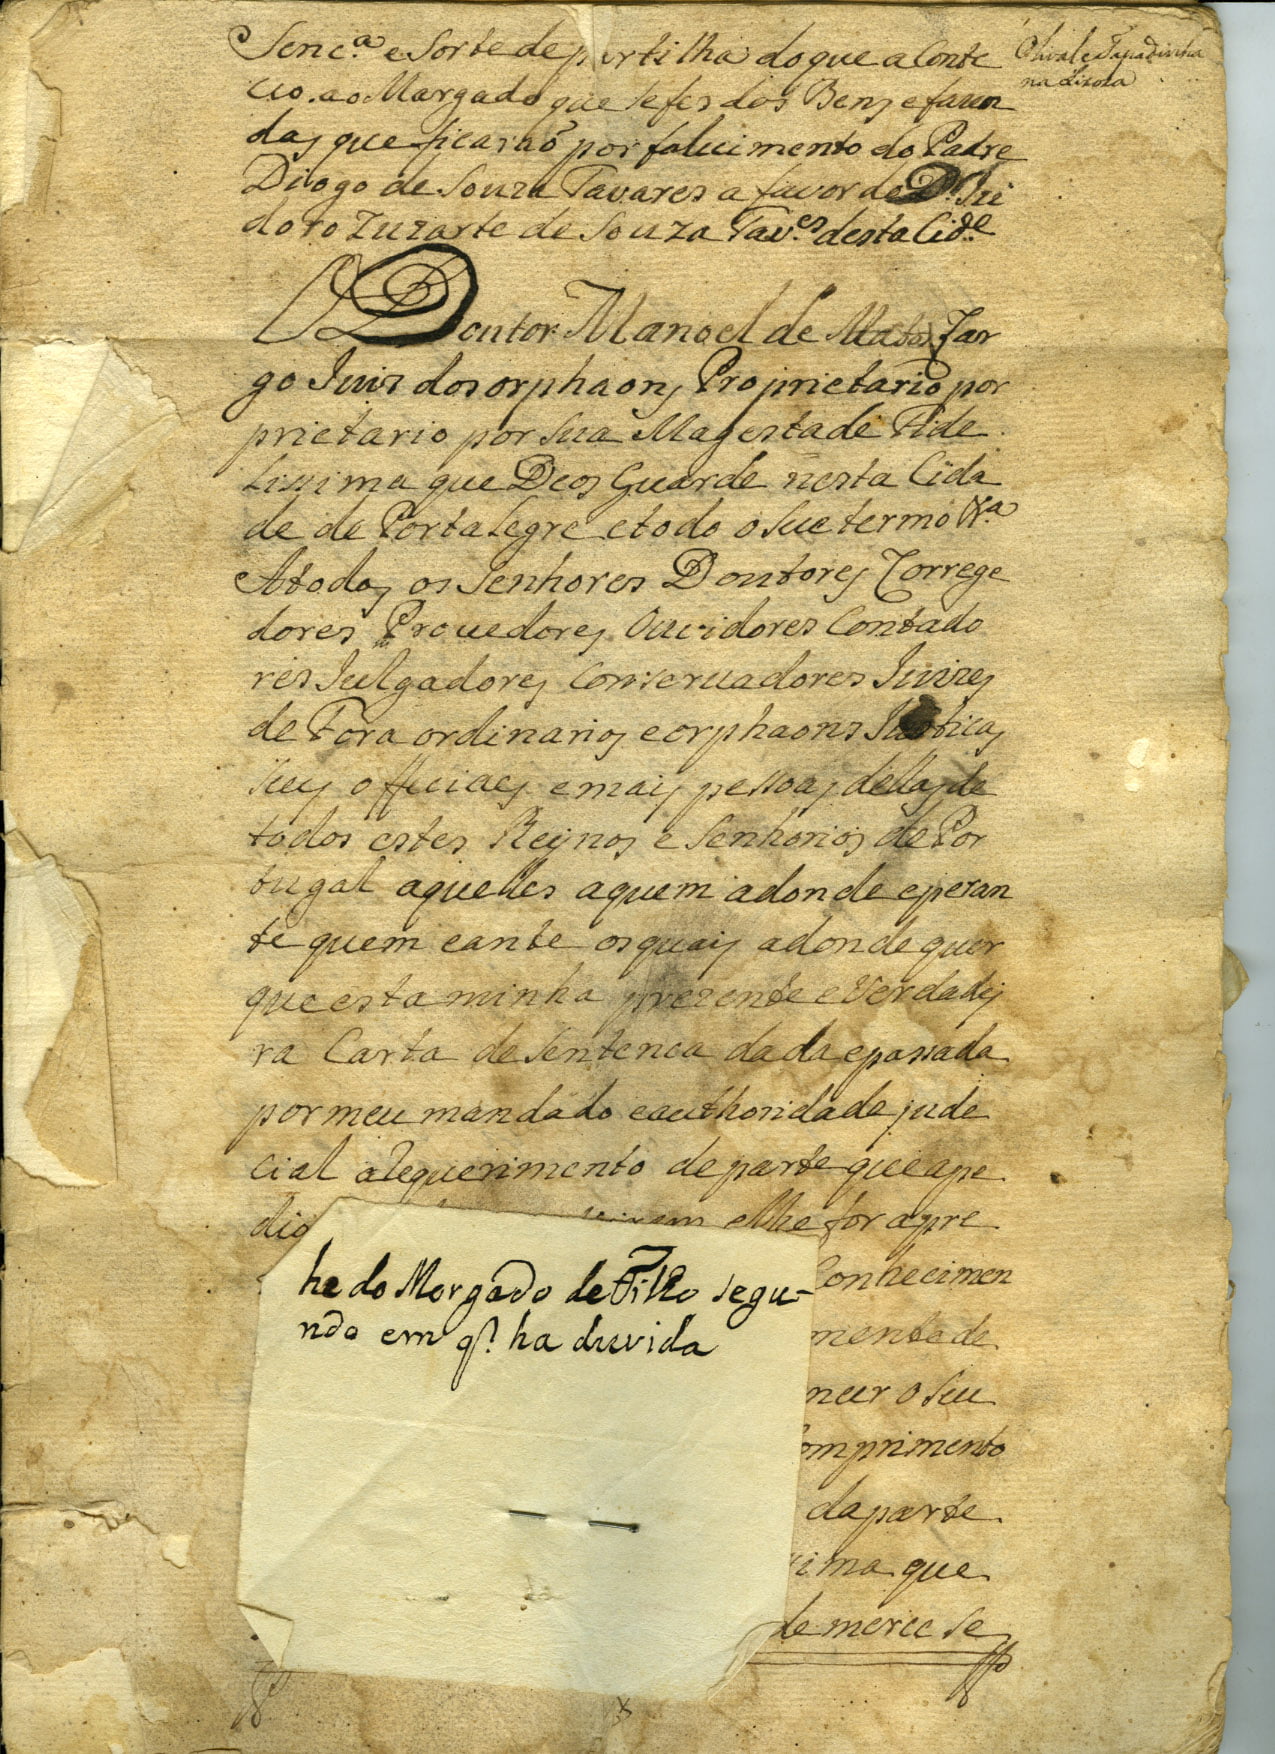 Senc.ª e Sorte de partilha do que aConte
ceo ao Morgado que se fes dos Bens e fazen
das que ficarão por falecimento do Padre
Diogo de Souza Tavares a favor de D. Izi
doro Zuzarte de Souza Tav.es desta Cid.e
Olival e Tapadinha
na Lixosa
O Doutor Manoel de Matos Zar
go Juis dos orphaons Proprietario por
prietario por Sua Magestade Fide
Lissima que Deos Guarde nesta Cida
de de Portalegre e todo o Seu termo &.ª
A todos os Senhores Doutores Correge
dores Provedores Ouvidores Contado
res Julgadores Conservadores Juizes
de Fora ordinarios e orphaons Justicas
seus officiaes e mais pessoas dellas de
todos estes Reynos e Senhorios de Por
tugal aquelles aquem adonde e peran
te quem e ante os quais adonde quer
que esta minha prezente e Verdadej
ra Carta de Sentenca dada e passada
por meu mandado e authoridade jude
cial a Requerimento de parte que a pe
dio elhe for apre
Conhecimen
he do Morgado de Filho segu-
ndo em q. ha duvida
mente de
o Seu
omprimento
da parte
ima que
de merce Se